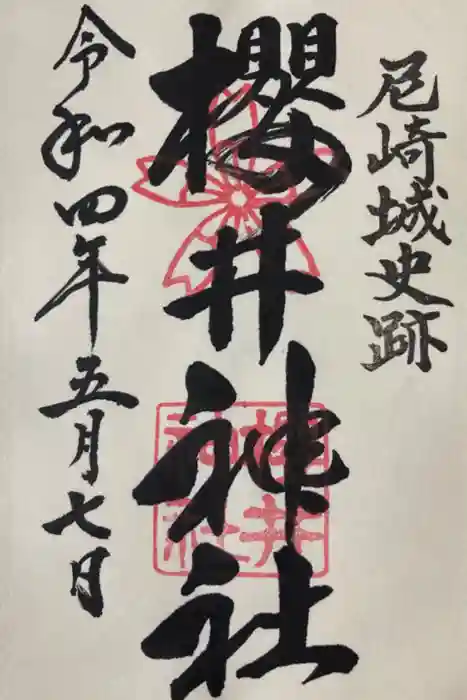 尼崎城史跡
櫻井神社
櫻井
神社
令和四年五月七日